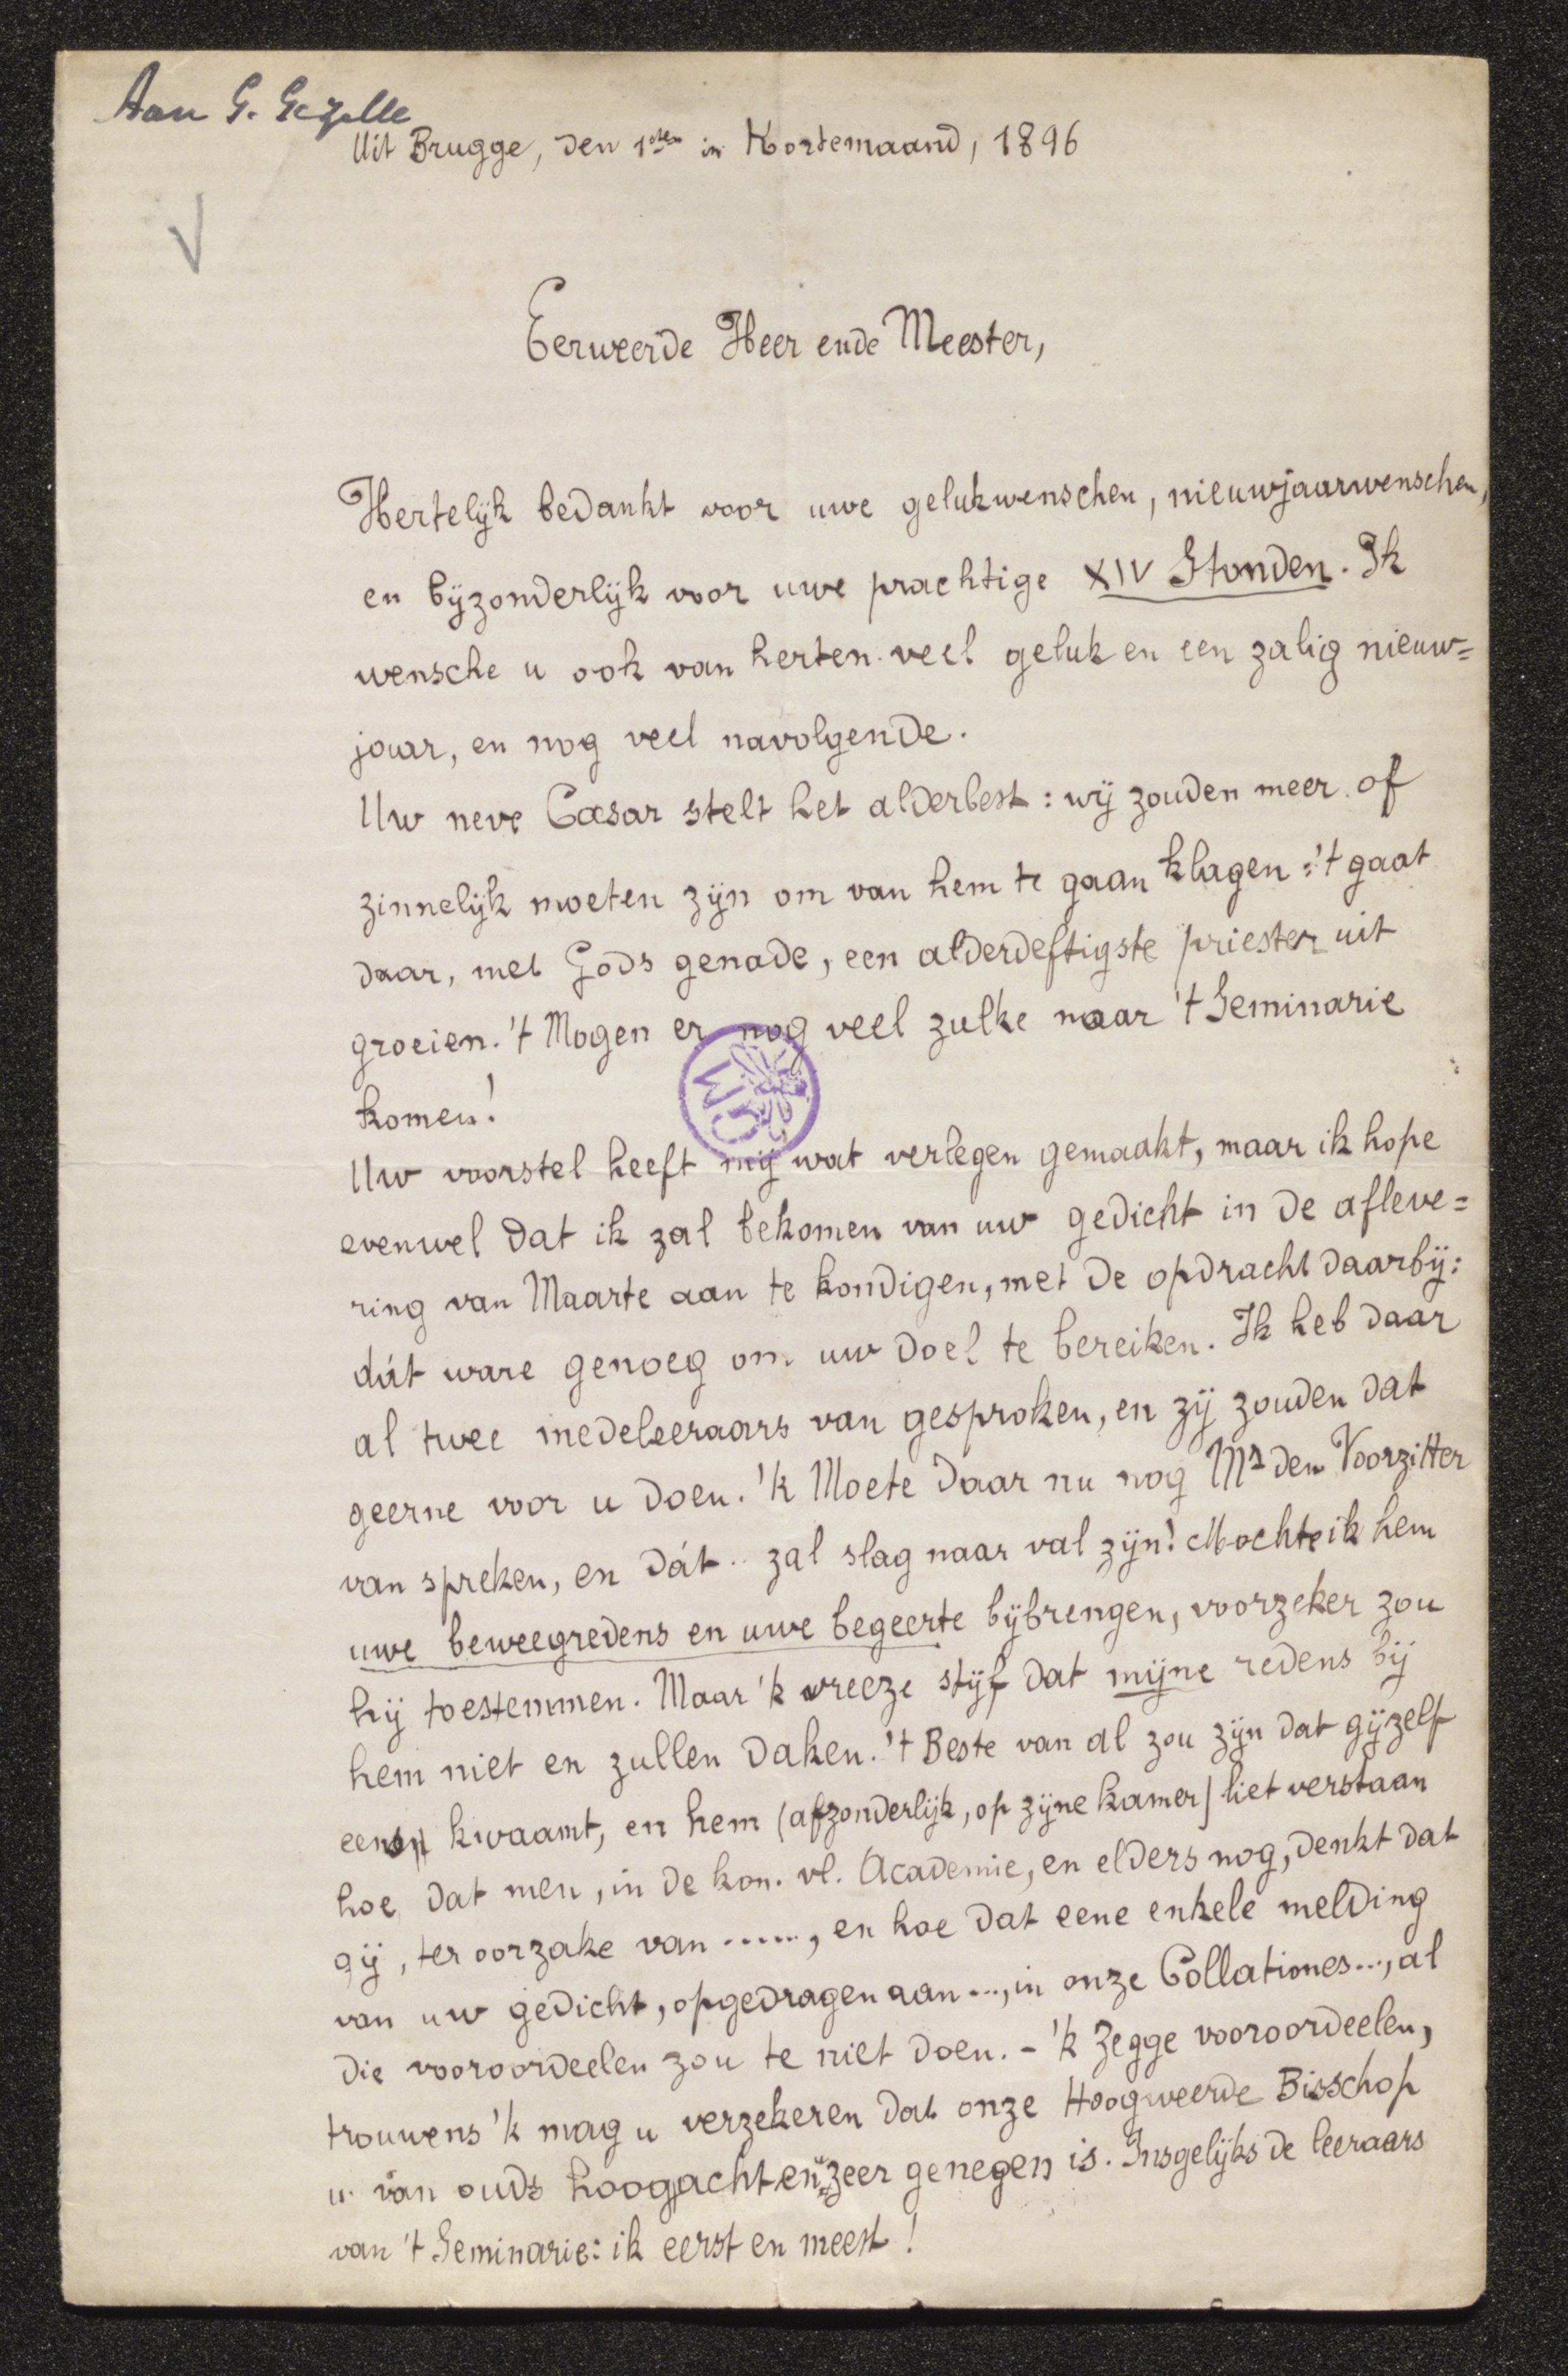 Aan G. Gezelle
Uit Brugge, den 1sten in Kortemaand, 1896
Eerweerde Heer ende Meester,
Hertelijk bedankt voor uwe gelukwenschen, nieuwjaarwenschen,
en bijzonderlijk voor uwe prachtige XIV Stonden. Ik
wensche u ook van herten veel geluk en een zalig nieuw=
jaar, en nog veel navolgende.
Uw neve Cæsar stelt het alderbest: wij zouden meer of
zinnelijk moeten zijn om van hem te gaan klagen: 't gaat
daar, met Gods genade, een alderdeftigste priester uit
groeien. 't Mogen er nog veel zulke naar 't Seminarie
komen!
Uw voorstel heeft mij wat verlegen gemaakt, maar ik hope
evenwel dat ik zal bekomen van uw gedicht in de afleve=
ring van Maarte aan te kondigen, met de opdracht daarbij:
dát ware genoeg om uw doel te bereiken. Ik heb daar
al twee medeleeraars van gesproken, en zij zouden dat
geerne voor u doen. 'k Moete daar nu nog Mr den Voorzitter
van spreken, en dát .. zal slag naar val zijn! Mochte ik hem
uwe beweegredens en uwe begeerte bijbrengen, voorzeker zou
hij toestemmen. Maar 'k vreeze stijf dat mijne redens bij
hem niet en zullen daken. 't Beste van al zou zijn dat gijzelf
eens kwaamt, en hem (afzonderlijk, op zijne kamer) liet verstaan
hoe dat men, in de kon. vl. Academie, en elders nog, denkt dat
gij, ter oorzake van ......, en hoe dat eene enkele melding
van uw gedicht, opgedragen aan ..., in onze Collationes..., al
die vooroordeelen zou te niet doen. - 'k Zegge vooroordeelen,
trouwens 'k mag u verzekeren dat onze Hoogweerde Bisschop
u van ouds hoogacht en u zeer genegen is. Insgelijks de leeraars
van 't Seminarie: ik eerst en meest!